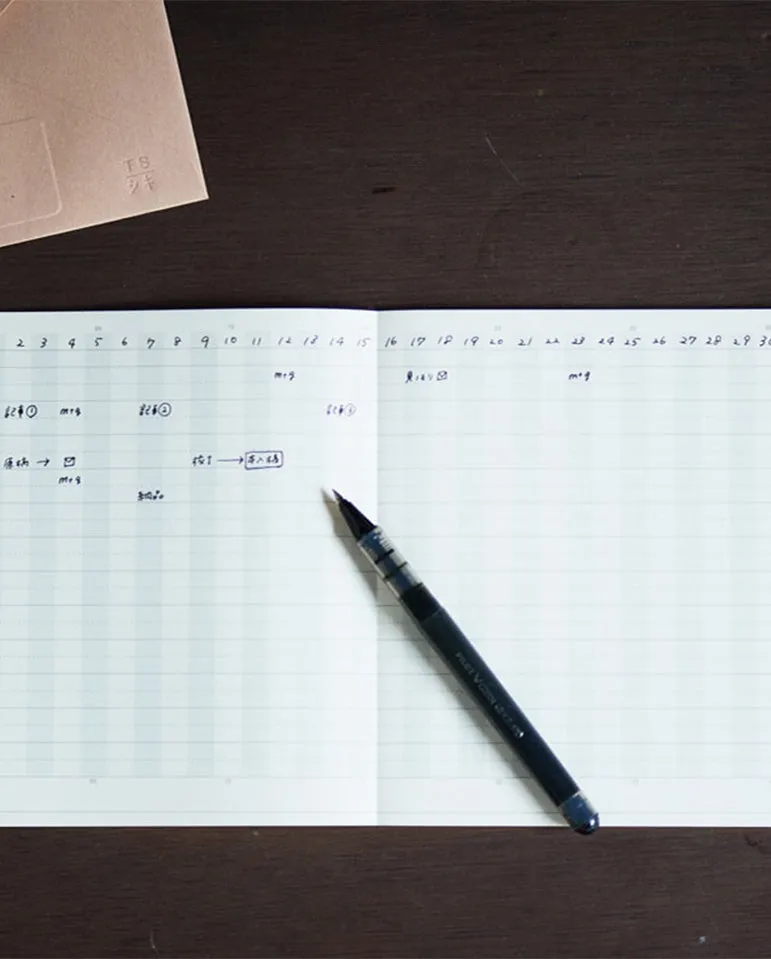 TS
シキ
2 3 4 5 6 7 8 9 10 11 12 13 14 15 16 17 18 19 20 21 22 23 24 25 26 27 28 29 30
mtg 見つもり mtg
記事① mtg 記事② 記事③
原稿 →
校了 → 再入稿
mtg
納品
PILOT V CORN